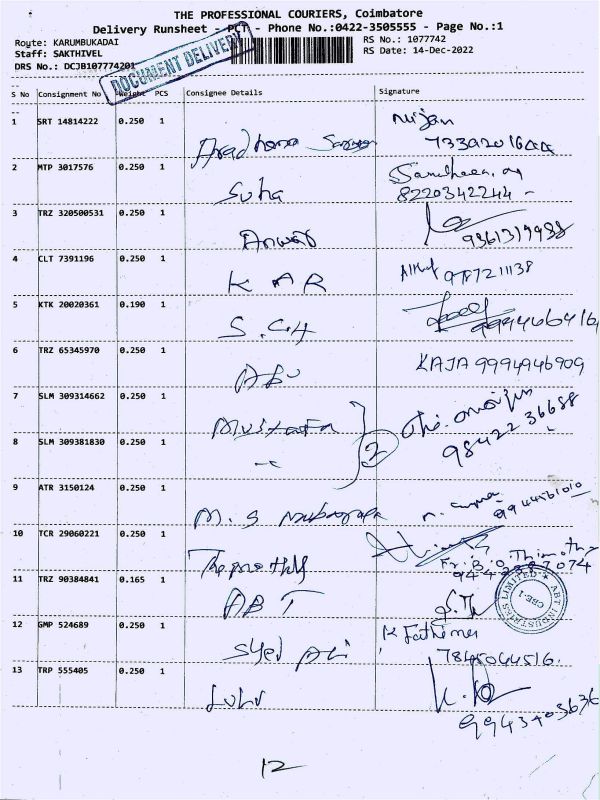 THE PROFESSIONAL COURIERS, Coimbatore
Delivery Runsheet - PCT - Phone No.:0422-3505555 - Page No.:1
Route: KARUMBUKADAI
Staff: SAKTHIVEL
DRS No.: DCJB107774201
RS No.: 1077742
RS Date: 14-Dec-2022
DOCUMENT DELIVERY
S No Consignment No Weight PCS Consignee Details Signature
1 SRT 14814222 0.250 1
2 MTP 3017576 0.250 1 Suha 8220342244
3 TRZ 320500531 0.250 1 Anwar
4 CLT 7391196 0.250 1 K A R
5 KTK 20020361 0.190 1 S.C.H
6 TRZ 65345970 0.250 1 ABU KAJA 9994946909
7 SLM 309314662 0.250 1 Mustafa
8 SLM 309381830 0.250 1 2 98422 36688
9 ATR 3150124 0.250 1 M. S
10 TCR 29060221 0.250 1 Fr. B.G. Thimothy
11 TRZ 90384841 0.165 1 ABT
ABT INDUSTRIAS LIMITED
CBE-1
12 GMP 524689 0.250 1 Syed Ali K Fathima
13 TRP 555405 0.250 1 Lulu 9943403636
12